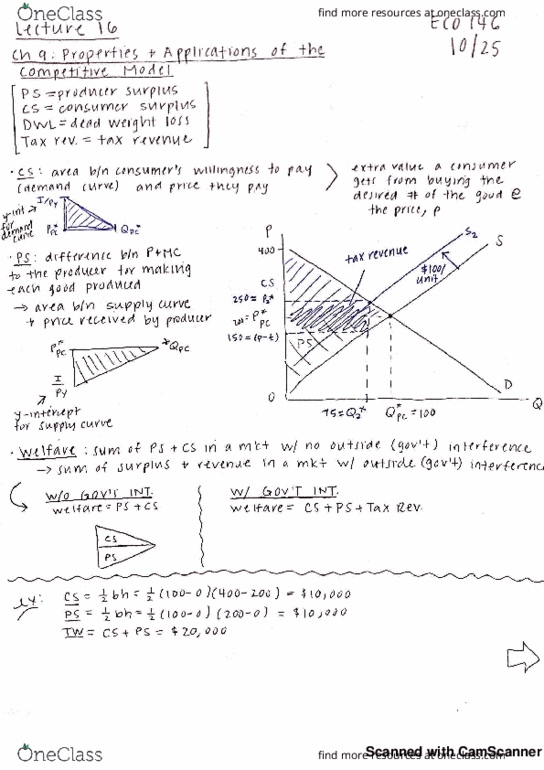 OneClass
find more resources at oneclass.com
Lecture 16
ECO 146
10/25
Ch 9: Properties + Applications of the
Competitive Model
PS = producer surplus
CS = consumer surplus
DWL = dead weight loss
Tax rev. = tax revenue
• CS: area b/n consumer's willingness to pay
(demand curve) and price they pay
extra value a consumer
gets from buying the
desired # of the good @
the price, p
y-int
for
demand
curve
I/Py
P*pc
Qpc*
• PS: difference b/n P+MC
to the producer for making
each good produced
→ area b/n supply curve
+ price received by producer
P*pc
*Qpc
I
Py
y-intercept
for supply curve
P
400
CS
250 = P2*
200 = P*pc
150 = (p-t)
PS
0
tax revenue
S2
S
$100/
unit
D
Q
75 = Q2*
Q*pc = 100
• Welfare: sum of PS + CS in a mkt w/ no outside (gov't) interference
→ sum of surplus + revenue in a mkt w/ outside (gov't) interference
W/O GOV'T INT.
welfare = PS + CS
CS
PS
W/ GOV'T INT.
welfare = CS + PS + Tax Rev.
ex:
CS = 1/2 bh = 1/2 (100-0)(400-200) = $10,000
PS = 1/2 bh = 1/2 (100-0)(200-0) = $10,000
TW = CS + PS = $20,000
Scanned with CamScanner
OneClass
find more resources at oneclass.com